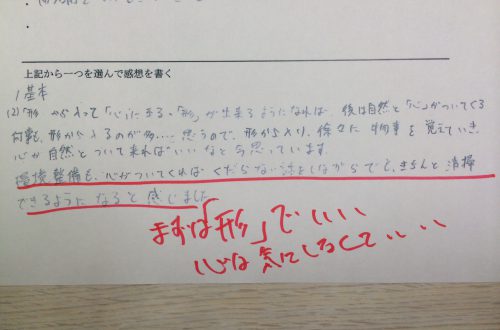 上記から一つを選んで感想を書く
1 基本
(2)「形」から入って「心」に至る・「形」が出来るようになれば、後は自然と「心」がついてくる
何事も、形から入るのが多 思うので、形から入り、徐々に物事を覚えていき、
心が自然とついて来ればいいなと今思っています。
環境整備も、心がついてくればくだらない話をしながらでも、きちんと清掃
できるようになると感じました
まずは「形」でいいい
心は気にしなくていい